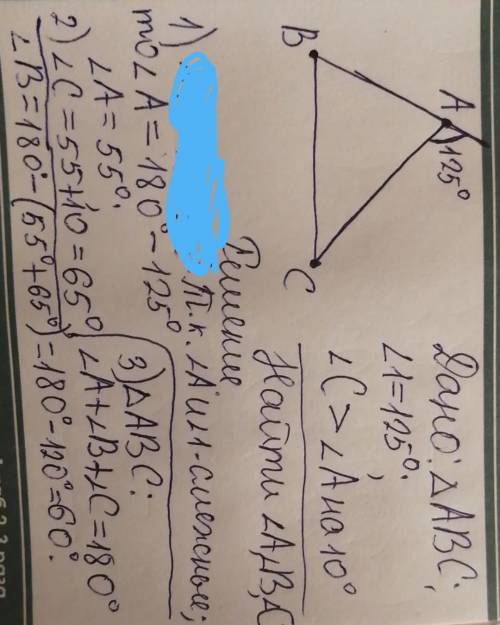 B
A
125°
C
Дано: △ABC;
∠1=125°;
∠C > ∠A на 10°
Найти ∠A,∠B,∠C
Решение
1) Т.к. ∠A и ∠1-смежные;
то ∠A = 180° - 125°
∠A = 55°.
2) ∠C = 55+10 = 65°
3) △ABC:
∠A+∠B+∠C = 180°
∠B = 180° - (55°+65°) = 180° - 120° = 60°.